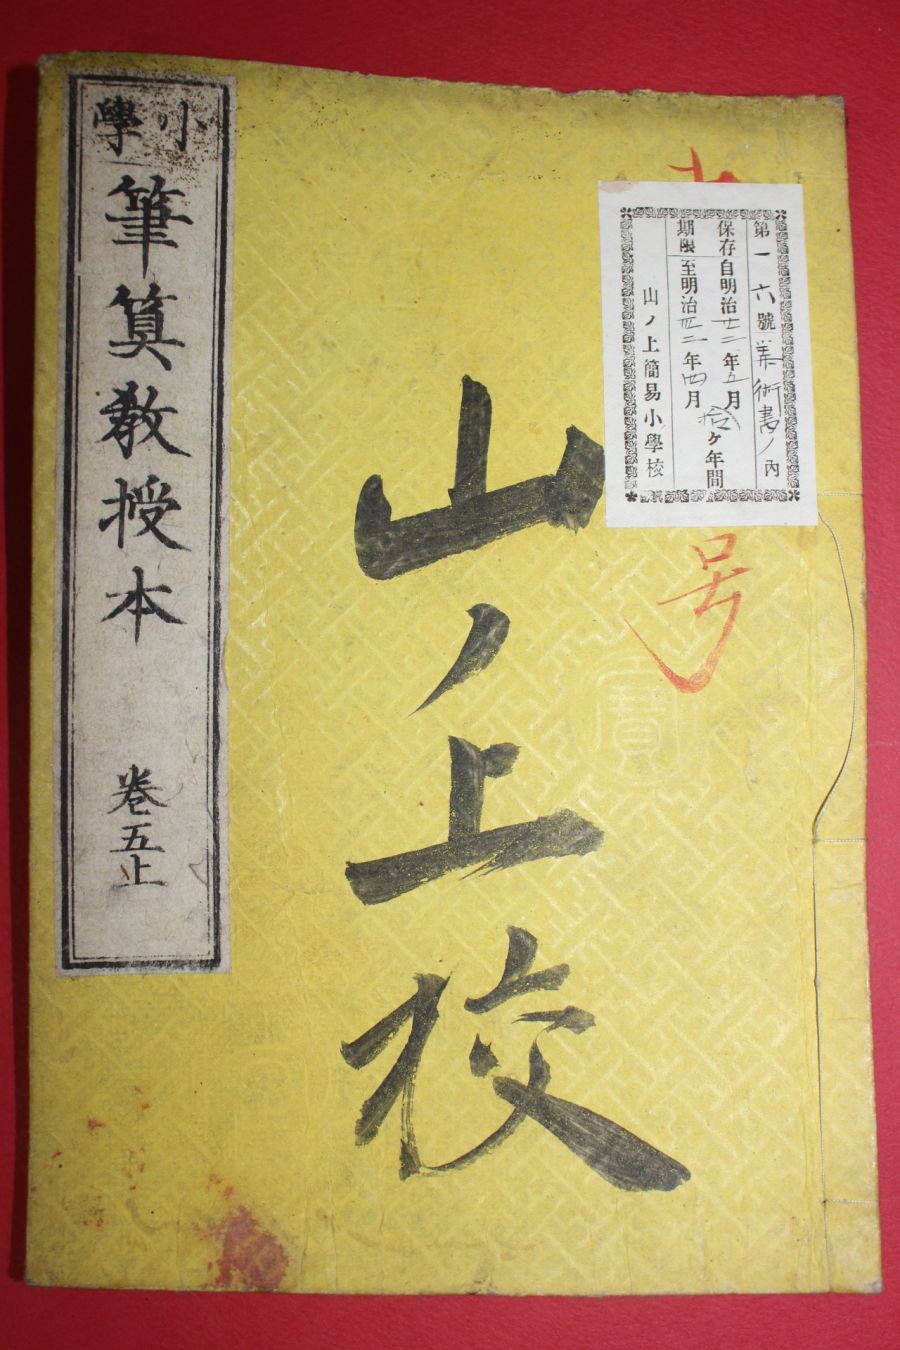 小學
筆算教授本
卷五止
山ノ上校
第一六號 美術書ノ內
保存自明治廿二年五月
拾ケ年間
期限至明治卅二年四月
山ノ上簡易小學校
号